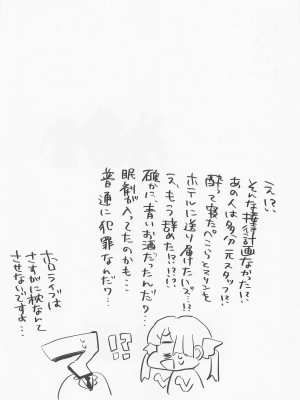 え!?
そんな接待計画なかった!?
あの人は多分元スタッフ!?
酔って寝たぺこらとマリンを
ホテルに送り届けたいズ…!?
え、もう辞めた!?!?!?
確かに、青いお酒だったんだ?…
眠剤が入ってたのかも…
普通に犯罪なんだ?…
ホロライブは
さすがに枕なんて
させないですよ…
!?